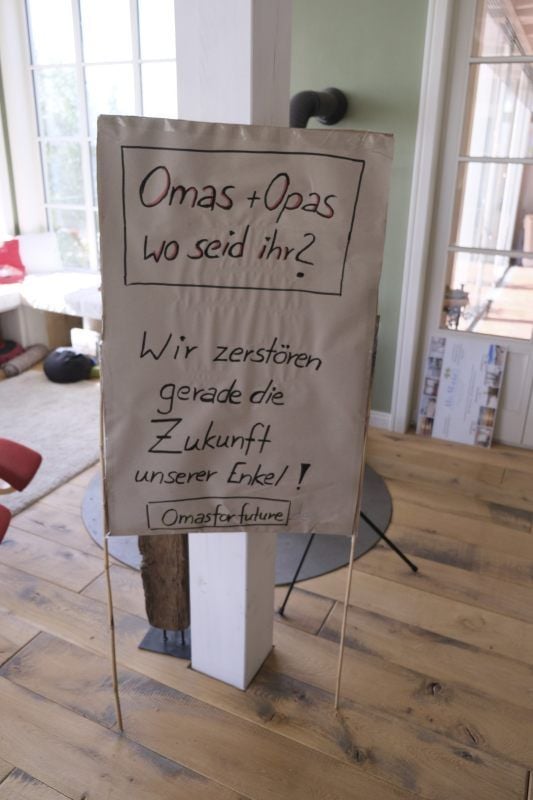 Omas + Opas
wo seid ihr?
Wir zerstören
gerade die
Zukunft
unserer Enkel!
Omasforfuture